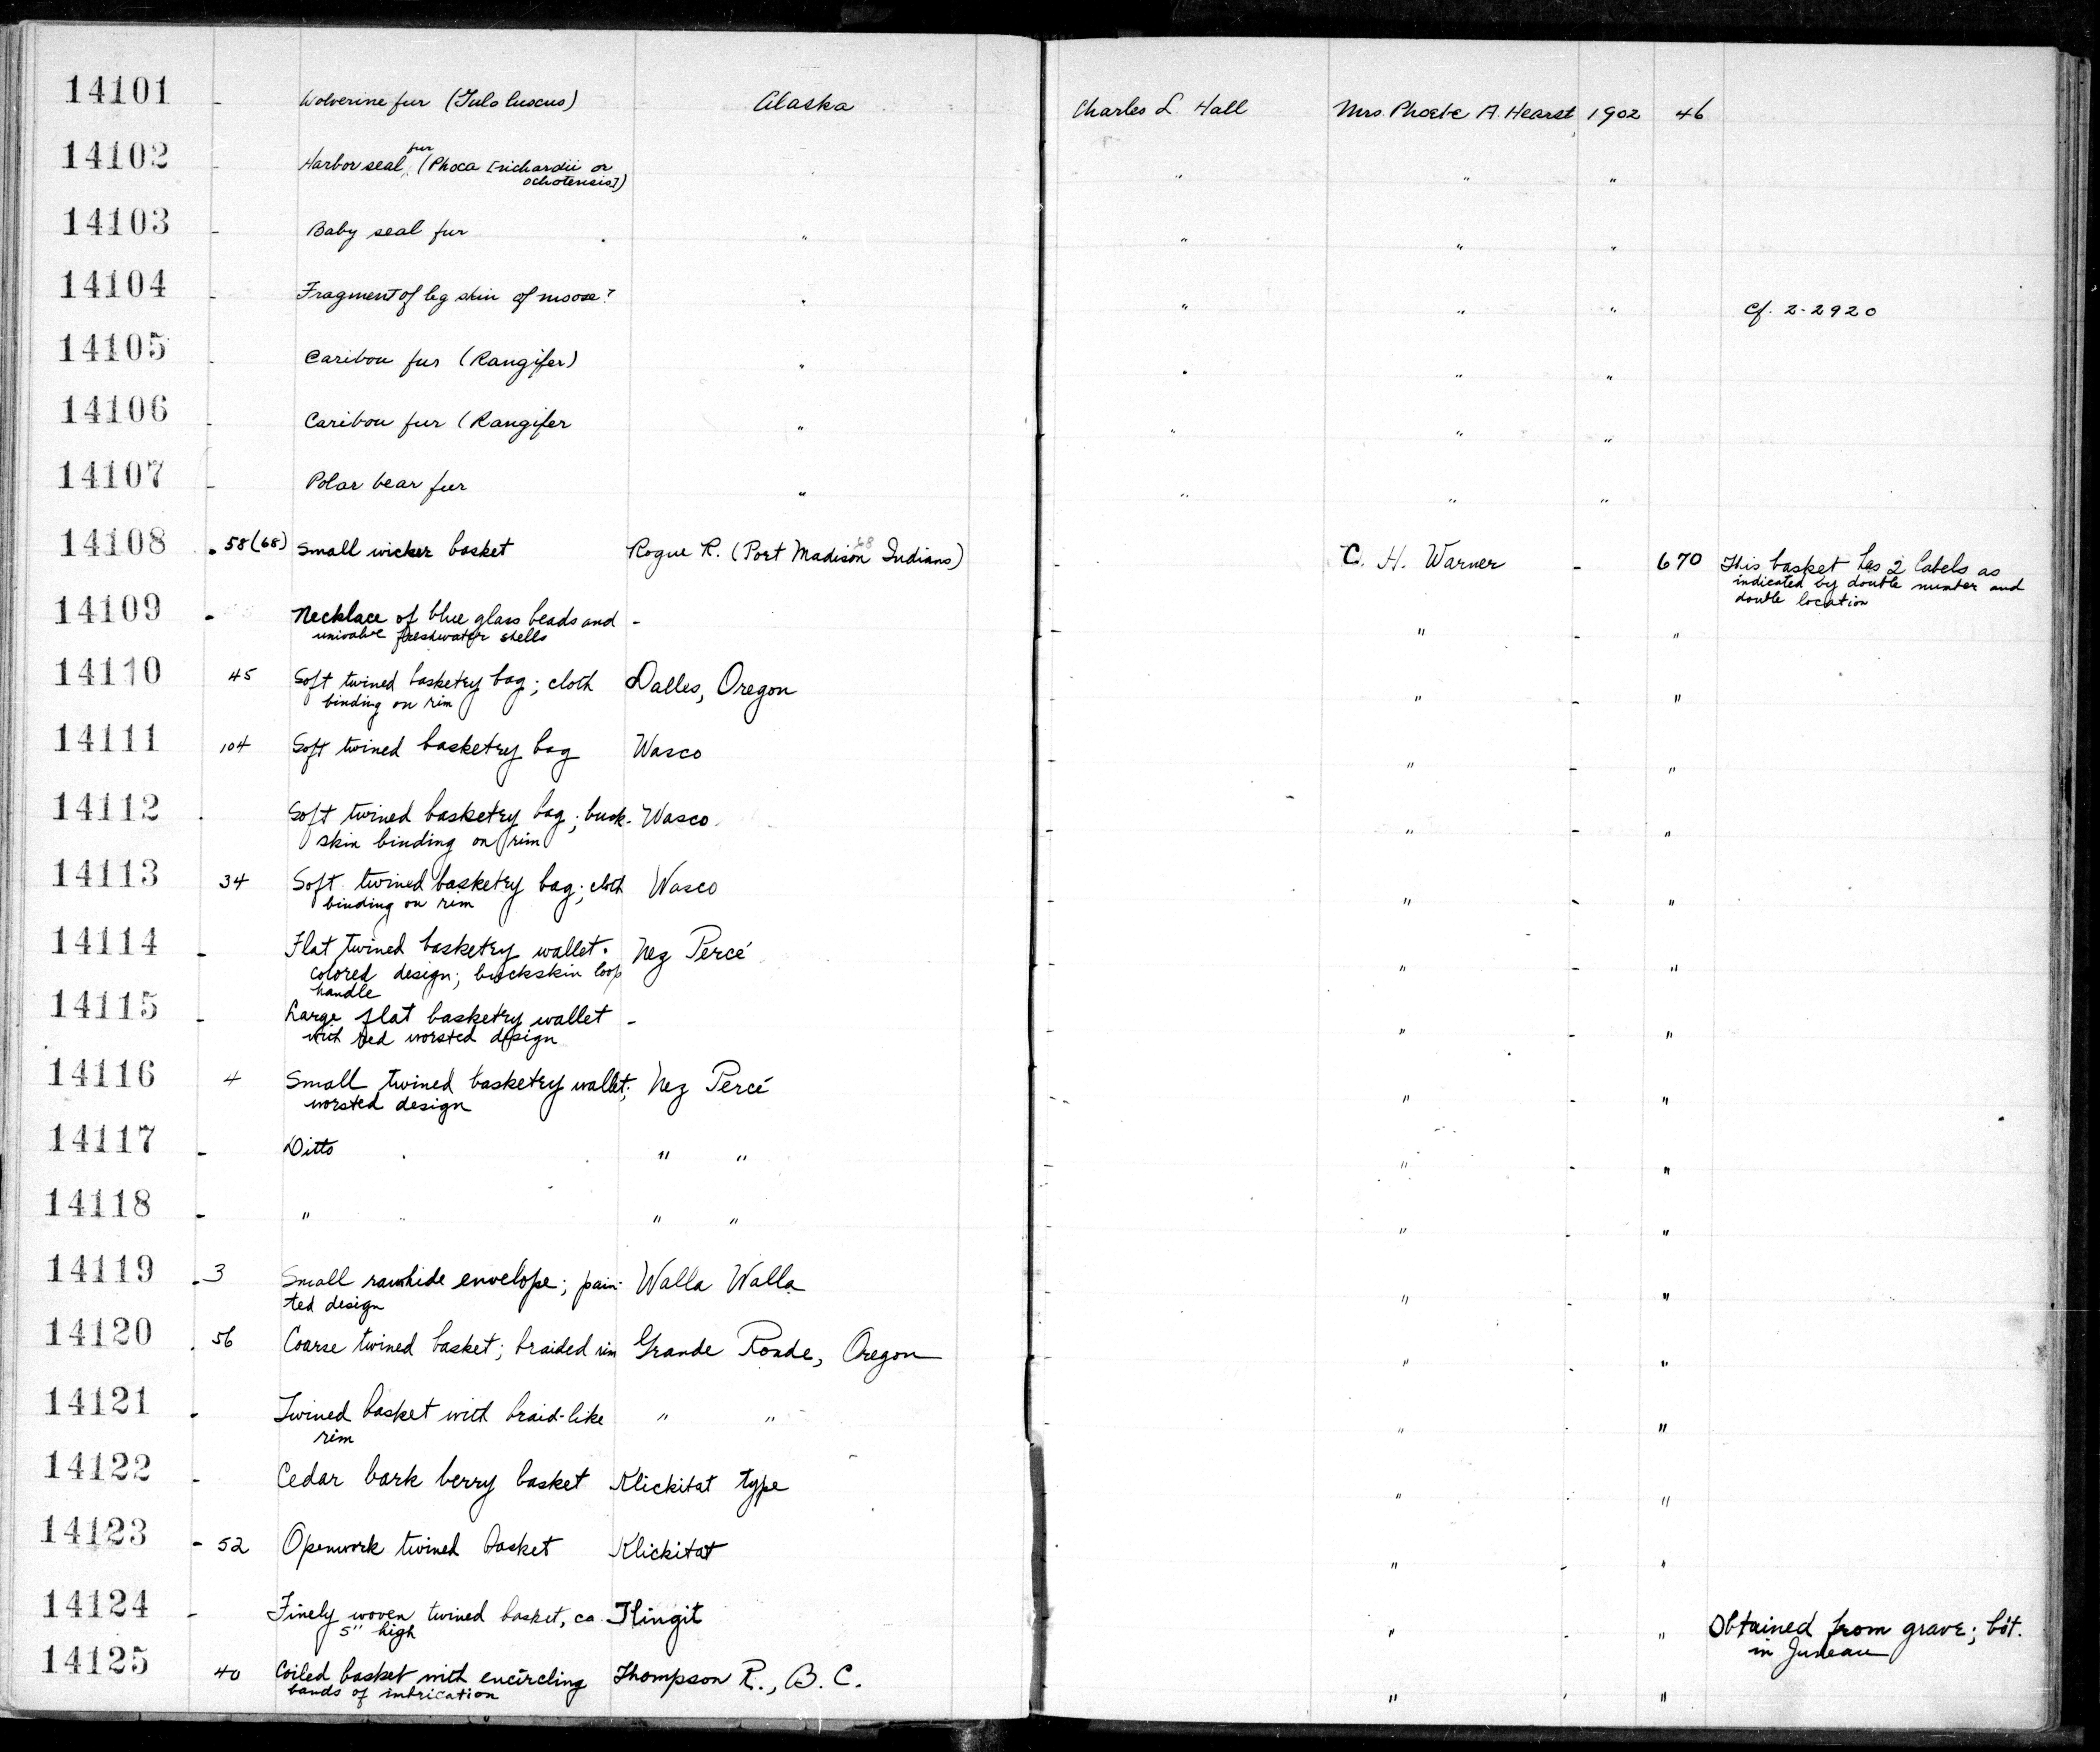 14101 - Wolverine fur (Gulo luscus) Alaska Charles L. Hall Mrs. Phoebe A. Hearst 1902 46
14102 - Harbor seal fur (Phoca [richardii or
ochotensis]) " " " "
14103 - Baby seal fur " " " "
14104 - Fragment of leg skin of moose? " " " " cf. 2-2920
14105 - Caribou fur (Rangifer) " " " "
14106 - Caribou fur (Rangifer " " " "
14107 - Polar bear fur " " " "
14108 58(68) Small wicker basket Rogue R. (Port Madison Indians) - C. H. Warner - 670 This basket has 2 labels as
indicated by double number and
double location
14109 - Necklace of blue glass beads and - - " - "
univalve freshwater shells
14110 45 Soft twined basketry bag; cloth Dalles, Oregon - " - "
binding on rim
14111 104 Soft twined basketry bag Wasco - " - "
14112 - Soft twined basketry bag; buck- Wasco - " - "
skin binding on rim
14113 34 Soft twined basketry bag; cloth Wasco - " - "
binding on rim
14114 - Flat twined basketry wallet. Nez Percé - " - "
colored design; buckskin loop
handle
14115 - Large flat basketry wallet - - " - "
with red worsted design
14116 4 Small twined basketry wallet; Nez Percé - " - "
worsted design
14117 - Ditto " " - " - "
14118 - " " " - " - "
14119 3 Small rawhide envelope; pain- Walla Walla - " - "
ted design
14120 56 Coarse twined basket; braided rim Grande Ronde, Oregon - " - "
14121 - Twined basket with braid-like " " - " - "
rim
14122 - Cedar bark berry basket Klickitat type " - "
14123 - 52 Openwork twined basket Klickitat " - "
14124 - Finely woven twined basket, ca. Tlingit " - " Obtained from grave; bót.
5" high in Juneau
14125 40 Coiled basket with encircling Thompson R., B. C. " - "
bands of imbrication